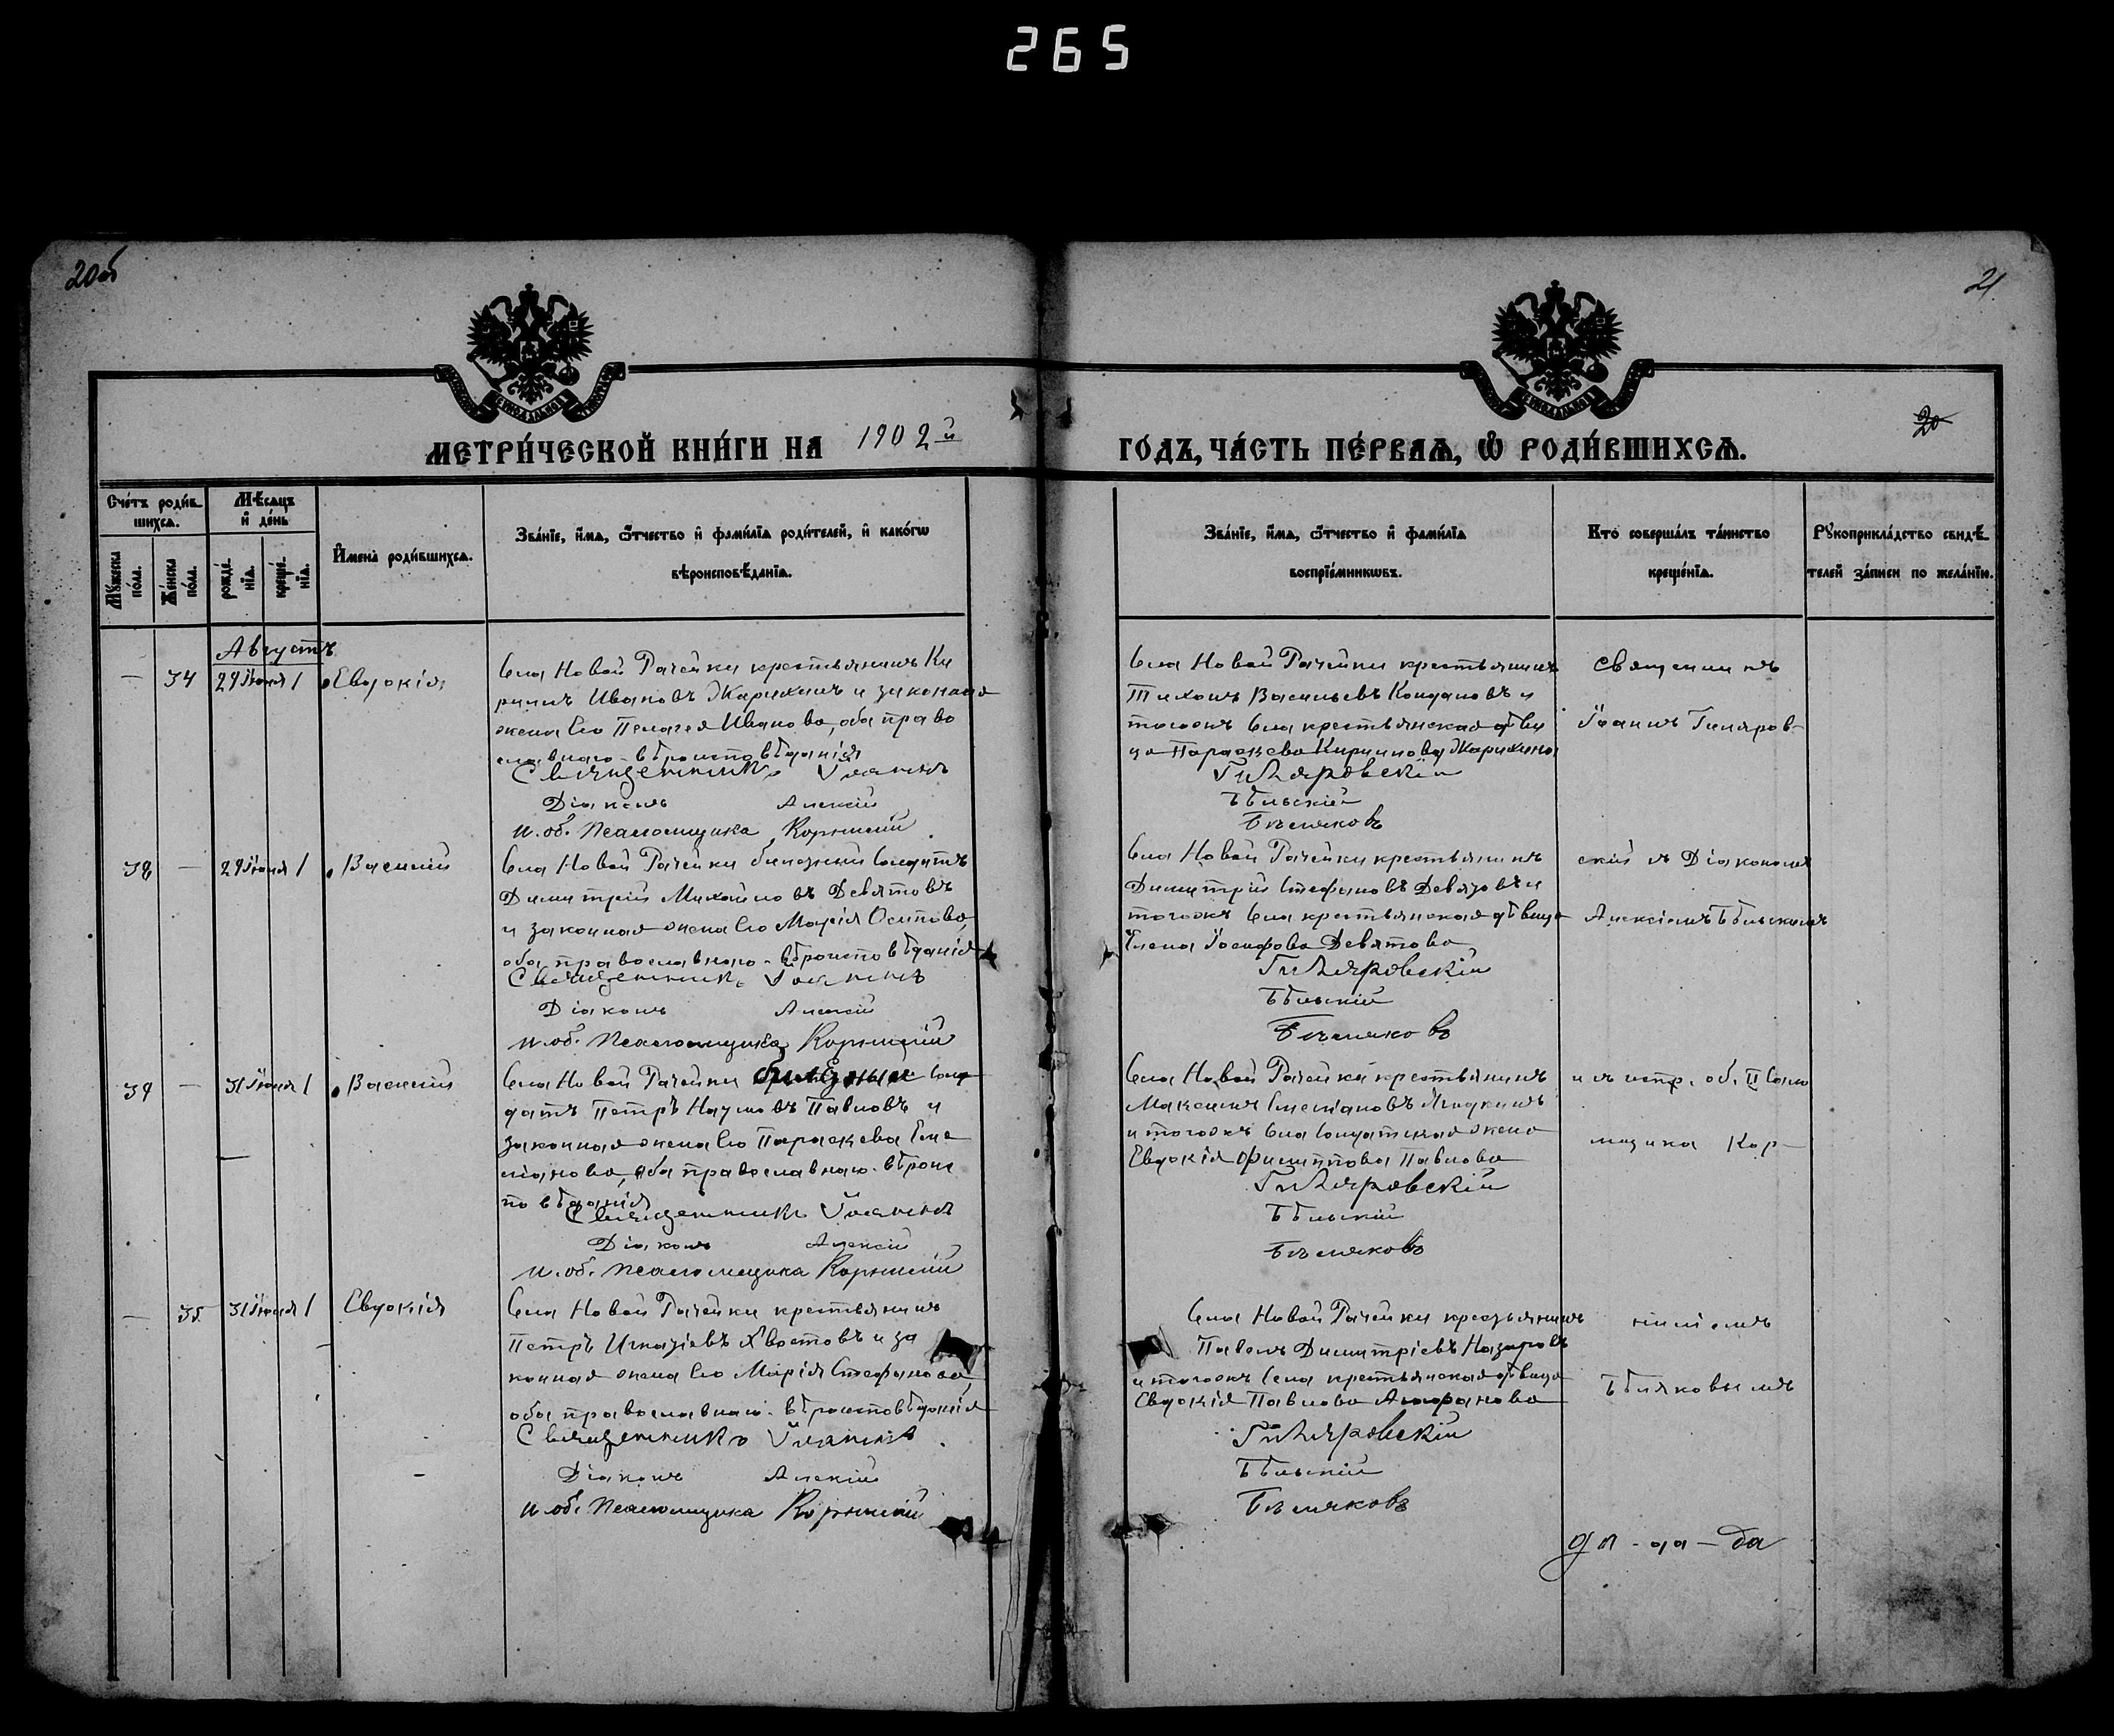 265
20об
21
МЕТРИ́ЧЕСКОЙ КНИ́ГИ НА 1902й
ГО́ДЪ, ЧА́СТЬ ПЕ́РВАѦ, Ѡ РОДИ́ВШИХСѦ.
20
Сче́тъ роди́в-
шихсѧ.
Мꙋ́жеска по́ла.
Же́нска по́ла.
Мѣ́сѧцъ
и де́нь
рожде́-
нїѧ.
креще́-
нїѧ.
Имена̀ роди́вшихсѧ.
Зва́нїе, и́мѧ, ѻ́тчество и фами́лїѧ роди́телей, и како́гѡ
вѣроисповѣ́данїѧ.
Зва́нїе, и́мѧ, ѻ́тчество и фами́лїѧ
воспрїе́мникѡвъ.
Кто̀ соверша́лъ та́инство
креще́нїѧ.
Рꙋкоприкла́дство свидѣ́-
телей за́писи по жела́нїю.
Августъ
— 34 29 Іюля 1 Евдокія
Села Новой Рачейки крестьянинъ Ки
риллъ Ивановъ Жарихинъ и законная
жена его Пелагея Иванова, оба право
славнаго вѣроисповѣданія
Священникъ Іоаннъ
Діаконъ Алексій
и. об. Псаломщика Корнилій
Села Новой Рачейки крестьянинъ
Тихонъ Васильевъ и
тогоже села крестьянская дѣви
ца Параскева Кириллова Жарихина
Гиляровскій
Бѣльскій
Бѣляковъ
Священникъ
Іоаннъ Гиляров-
38 — 29 Іюля 1 Василій
Села Новой Рачейки билетный солдатъ
Димитрій Михайловъ Девятовъ
и законная жена его Марія Осипова,
оба православнаго вѣроисповѣданія
Священникъ Іоаннъ
Діаконъ Алексій
и. об. Псаломщика Корнилій
Села Новой Рачейки крестьянинъ
Димитрій Стефановъ Девятовъ и
тогоже села крестьянская дѣвица
Елена Іосифова Девятова
Гиляровскій
Бѣльскій
Бѣляковъ
скій съ Діакономъ
Алексіемъ Бѣльскимъ
39 — 31 Іюля 1 Василій
Села Новой Рачейки билетный сол
датъ Петръ Наумовъ Павловъ и
законная жена его Параскева Еме
ліанова, оба православнаго вѣроис
повѣданія
Священникъ Іоаннъ
Діаконъ Алексій
и. об. Псаломщика Корнилій
Села Новой Рачейки крестьянинъ
Максимъ
и тогоже села солдатская жена
Евдокія Филиппова Павлова
Гиляровскій
Бѣльскій
Бѣляковъ
и съ испр. об. Псало
мщика Кор-
— 35 31 Іюля 1 Евдокія
Села Новой Рачейки крестьянинъ
Петръ Игнатіевъ Хвостовъ и за
конная жена его Марія Стефанова,
оба православнаго вѣроисповѣданія
Священникъ Іоаннъ
Діаконъ Алексій
и. об. Псаломщика Корнилій
Села Новой Рачейки крестьянинъ
Павелъ Димитріевъ Назаровъ
и тогоже села крестьянская дѣвица
Евдокія Павлова
Гиляровскій
Бѣльскій
Бѣляковъ
ниліемъ
Бѣляковымъ